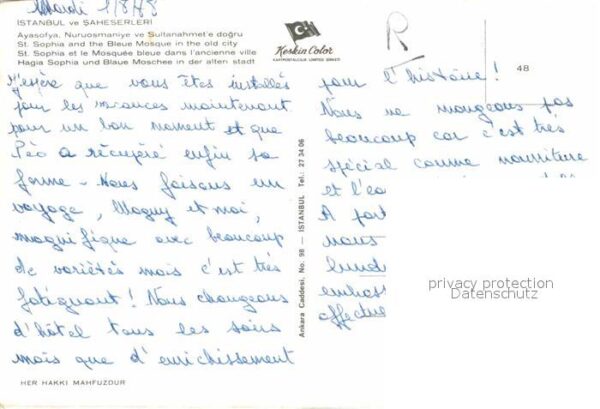 Mardi 1/8/78
İSTANBUL ve ŞAHESERLERİ
Ayasofya, Nuruosmaniye ve Sultanahmet'e doğru
St. Sophia and the Bleue Mosque in the old city
St. Sophia et le Mosquée bleue dans l'ancienne ville
Hagia Sophia und Blaue Moschee in der alten stadt
Keskin Color
KARTPOSTALCILIK LIMITED ŞİRKETİ
R
48
J'espère que vous êtes installés
pour les vacances maintenant
pour un bon moment et que
Péo a récupéré enfin sa
forme - Nous faisons un
voyage, Maguy et moi,
magnifique avec beaucoup
de variétés mais c'est très
fatiguant! Nous changeons
d'hôtel tous les soirs
mais que d'enrichissement
pour l'histoire!
Nous ne mangeons pas
beaucoup car c'est très
spécial comme nourriture
et l'ea
A part
nous
lund
embras
affectue
Ankara Caddesi, No. 98 — İSTANBUL Tel.: 27 34 06
HER HAKKI MAHFUZDUR
privacy protection
Datenschutz